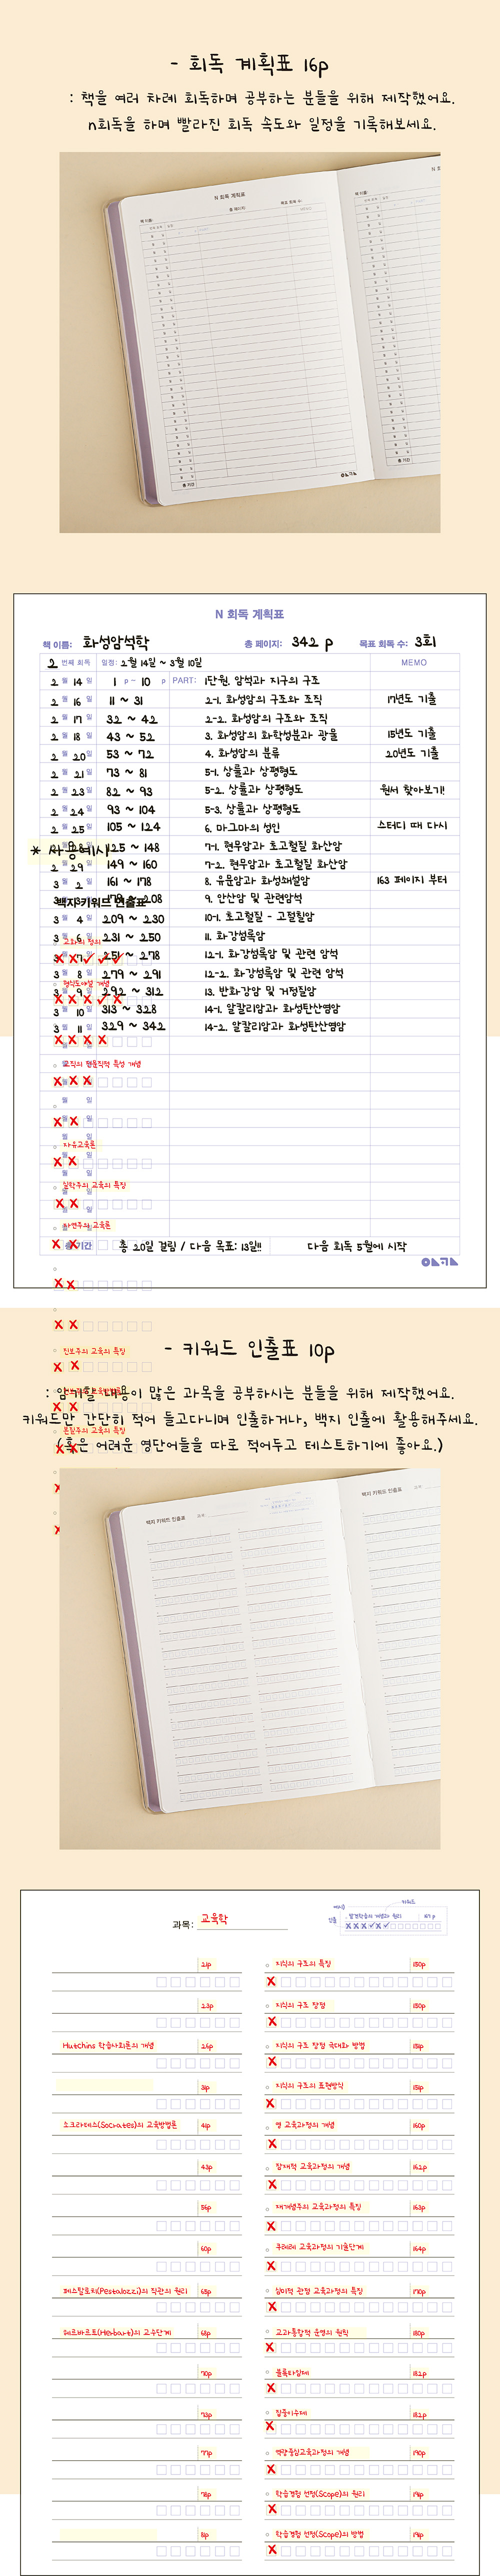 - 회독 계획표 16p
: 책을 여러 차례 회독하며 공부하는 분들을 위해 제작했어요.
n회독을 하며 빨라진 회독 속도와 일정을 기록해보세요.
N 회독 계획표
책 이름:
총 페이지:
목표 회독 수:
N 회독 계획표
책 이름: 화성암석학 총 페이지: 342 p 목표 회독 수: 3회
2 번째 회독 일정: 2월 14일 ~ 3월 10일 MEMO
2 월 14 일 1 p ~ 10 p PART: 1단원. 암석과 지구의 구조
2 월 16 일 11 ~ 31 2-1. 화성암의 구조와 조직 17년도 기출
2 월 17 일 32 ~ 42 2-2. 화성암의 구조와 조직
2 월 18 일 43 ~ 52 3. 화성암의 화학성분과 광물 15년도 기출
2 월 20 일 53 ~ 72 4. 화성암의 분류 20년도 기출
2 월 21 일 73 ~ 81 5-1. 상률과 상평형도
2 월 23 일 82 ~ 93 5-2. 상률과 상평형도 원서 찾아보기!
2 월 24 일 93 ~ 104 5-3. 상률과 상평형도
2 월 25 일 105 ~ 124 6. 마그마의 성인 스터디 때 다시
* 사용예시
125 ~ 148 7-1. 현무암과 초고철질 화산암
2 29 149 ~ 160 7-2. 현무암과 초고철질 화산암
3 2 161 ~ 178 8. 유문암과 화성쇄설암 163 페이지 부터
백지 키워드 인출표
208 9. 안산암 및 관련암석
3 월 4 일 209 ~ 230 10-1. 초고철질 - 고철질암
3 6 231 ~ 250 11. 화강섬록암
3 7 251 ~ 278 12-1. 화강섬록암 및 관련 암석
3 8 279 ~ 291 12-2. 화강섬록암 및 관련 암석
3 9 292 ~ 312 13. 반화강암 및 거정질암
3 10 313 ~ 328 14-1. 알칼리암과 화성탄산염암
3 11 329 ~ 342 14-2. 알칼리암과 화성탄산염암
자유교육론
실학주의 교육의 특징
자연주의 교육론
총 기간 총 20일 걸림 / 다음 목표: 13일!! 다음 회독 5월에 시작
진보주의 교육의 특징
본질주의 교육의 특징
- 키워드 인출표 10p
: 암기할 내용이 많은 과목을 공부하시는 분들을 위해 제작했어요.
키워드만 간단히 적어 들고다니며 인출하거나, 백지 인출에 활용해주세요.
(혹은 어려운 영단어들을 따로 적어두고 테스트하기에 좋아요.)
백지 키워드 인출표
백지 키워드 인출표
과목: 교육학
키워드
발견학습의 개념과 원리 67 p
인출
21p
23p
Hutchins 학습사회론의 개념 26p
31p
소크라테스(Socrates)의 교육방법론 41p
43p
56p
60p
페스탈로치(Pestalozzi)의 직관의 원리 65p
헤르바르트(Herbart)의 교수단계 68p
70p
73p
77p
78p
81p
지식의 구조의 특징 150p
지식의 구조 장점 150p
지식의 구조 장점 극대화 방법 151p
지식의 구조의 표현방식 151p
영 교육과정의 개념 160p
잠재적 교육과정의 개념 162p
재개념주의 교육과정의 특징 163p
쿠레레 교육과정의 기술단계 164p
심미적 관점 교육과정의 특징 170p
교과통합적 운영의 원칙 180p
블록타임제 182p
집중이수제 182p
역량중심교육과정의 개념 190p
학습경험 선정(Scope)의 원리 194p
학습경험 선정(Scope)의 방법 194p